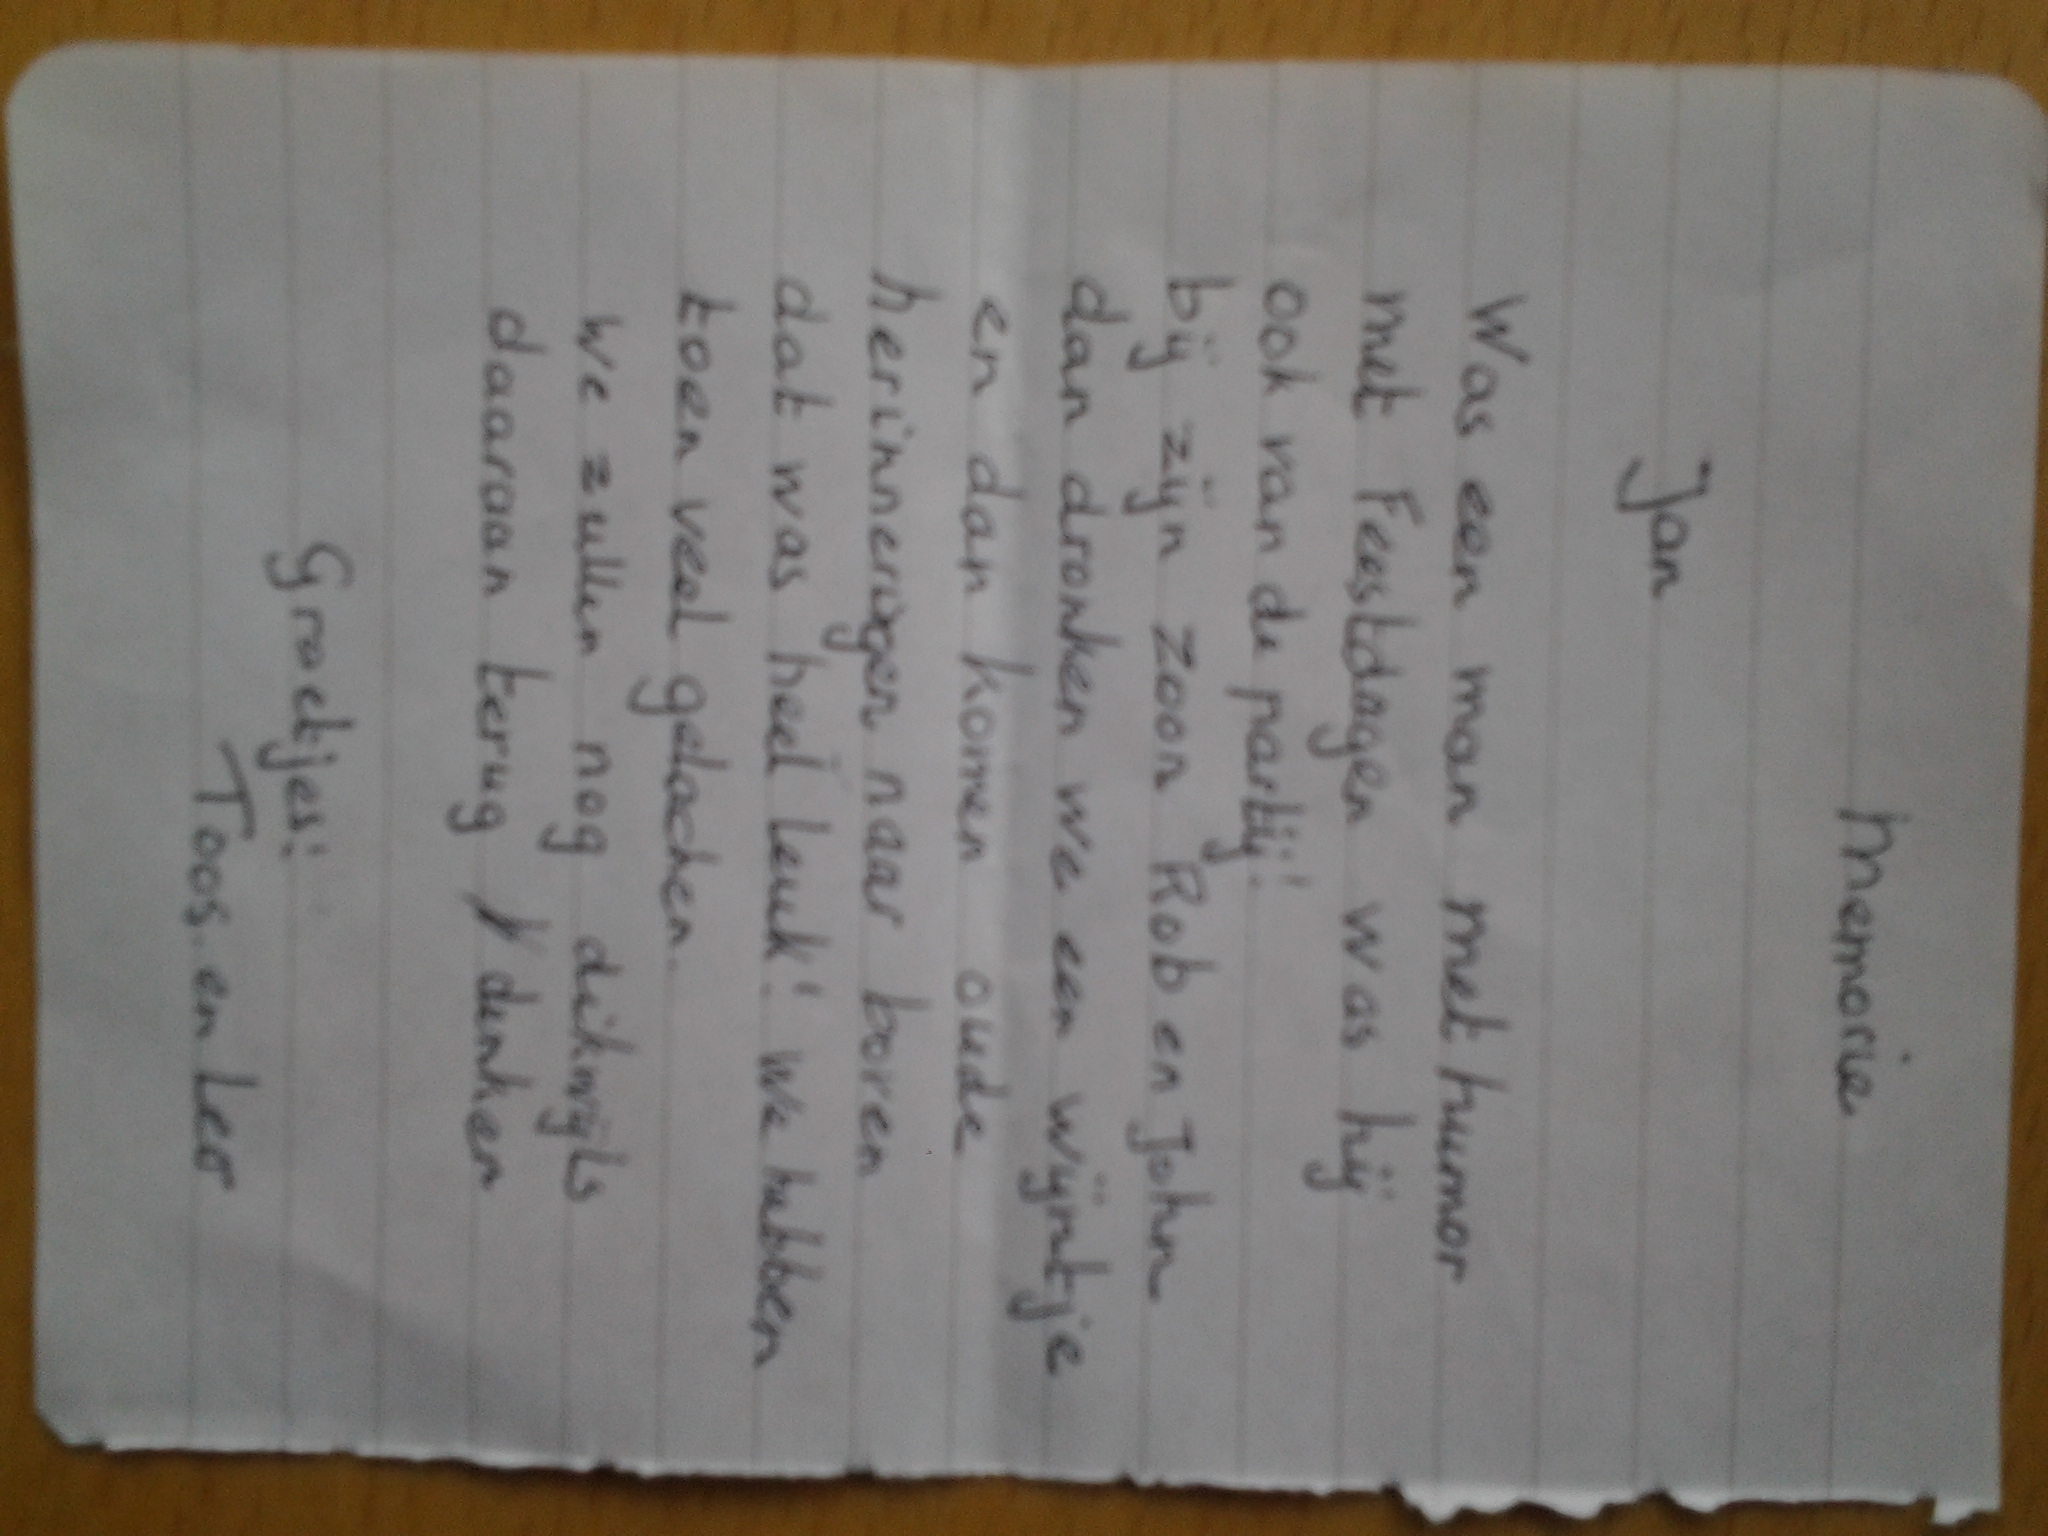 Memorie
Jan
Was een man met humor
met Feestdagen was hij
ook van de partij!
bij zijn zoon Rob en John
dan dronken we een wijntje
en dan komen oude
herinneringen naar boren
dat was heel leuk! we hebben
toen veel gelachen.
we zullen nog dikwijls
daaraan terug denken
Groetjes!
Toos en Leo